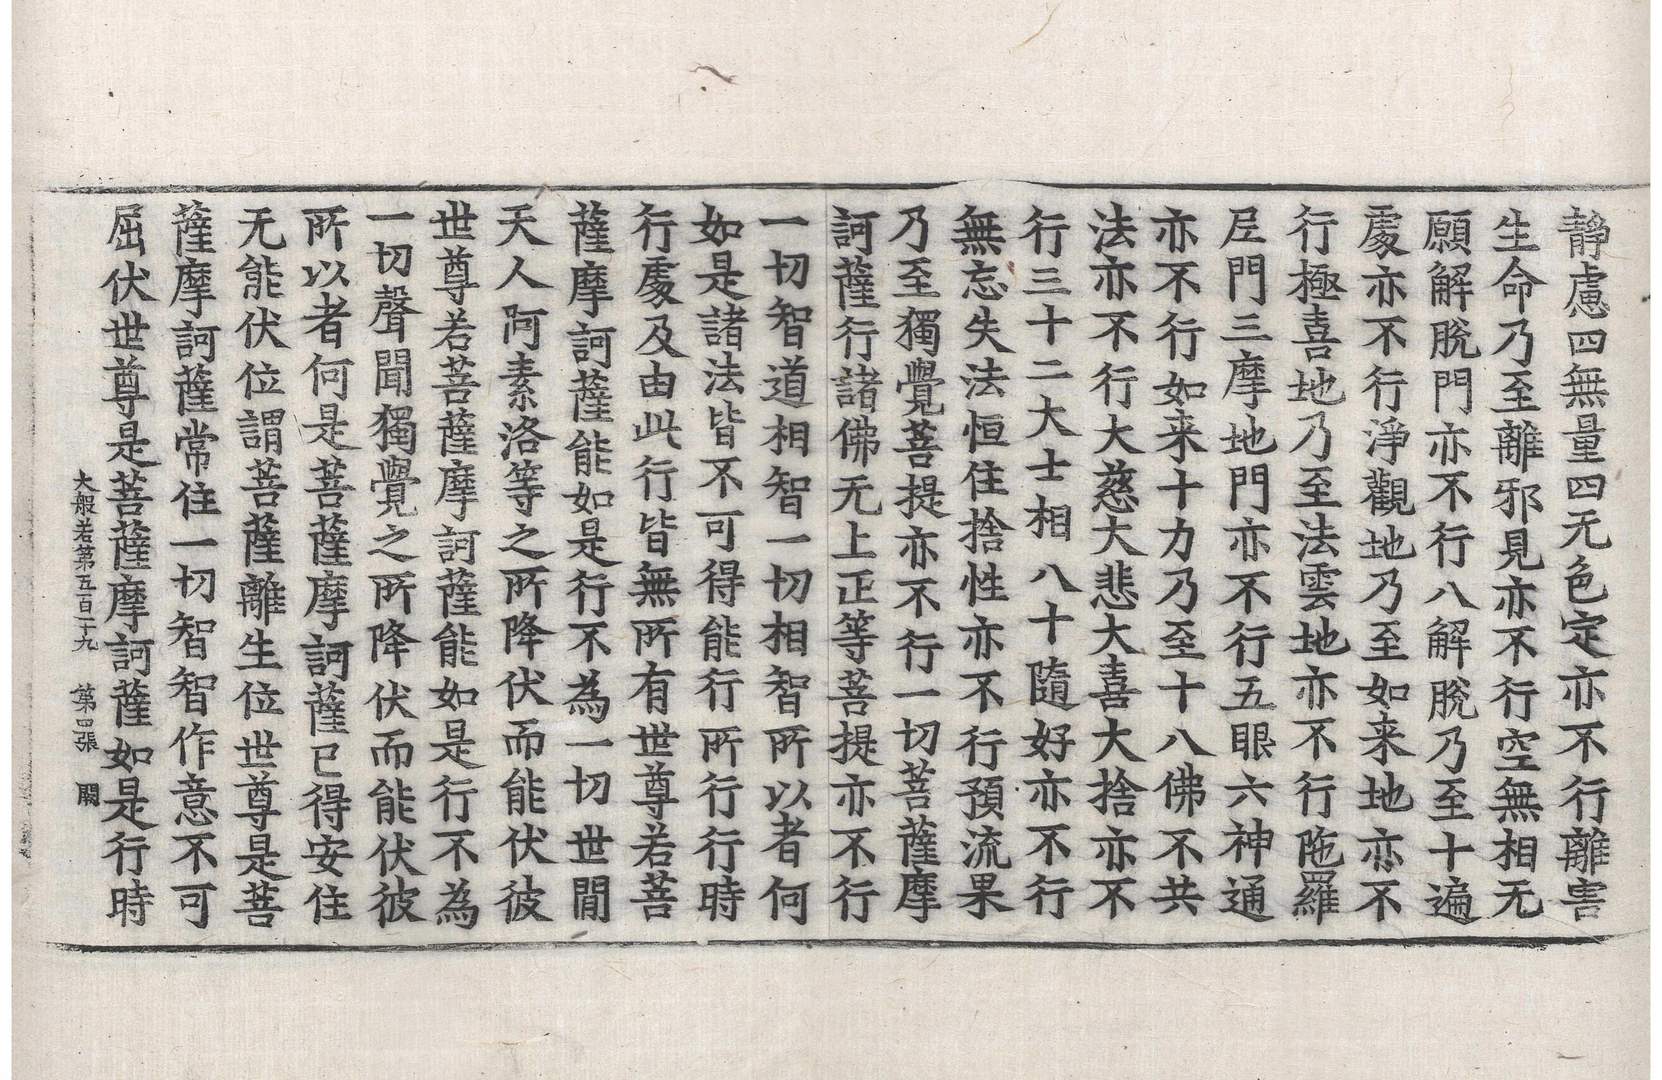 靜慮四無量四无色定亦不行離害
生命乃至離邪見亦不行空無相无
願解脫門亦不行八解脫乃至十遍
處亦不行淨觀地乃至如来地亦不
行極喜地乃至法雲地亦不行陁羅
尼門三摩地門亦不行五眼六神通
亦不行如来十力乃至十八佛不共
法亦不行大慈大悲大喜大捨亦不
行三十二大士相八十隨好亦不行
無忘失法恒住捨性亦不行預流果
乃至獨覺菩提亦不行一切菩薩摩
訶薩行諸佛无上正等菩提亦不行
一切智道相智一切相智所以者何
如是諸法皆不可得能行所行行時
行處及由此行皆無所有世尊若菩
薩摩訶薩能如是行不為一切世間
天人阿素洛等之所降伏而能伏彼
世尊若菩薩摩訶薩能如是行不為
一切聲聞獨覺之所降伏而能伏彼
所以者何是菩薩摩訶薩已得安住
无能伏位謂菩薩離生位世尊是菩
薩摩訶薩常住一切智智作意不可
屈伏世尊是菩薩摩訶薩如是行時
大般若第五百二十九 第四張 闕